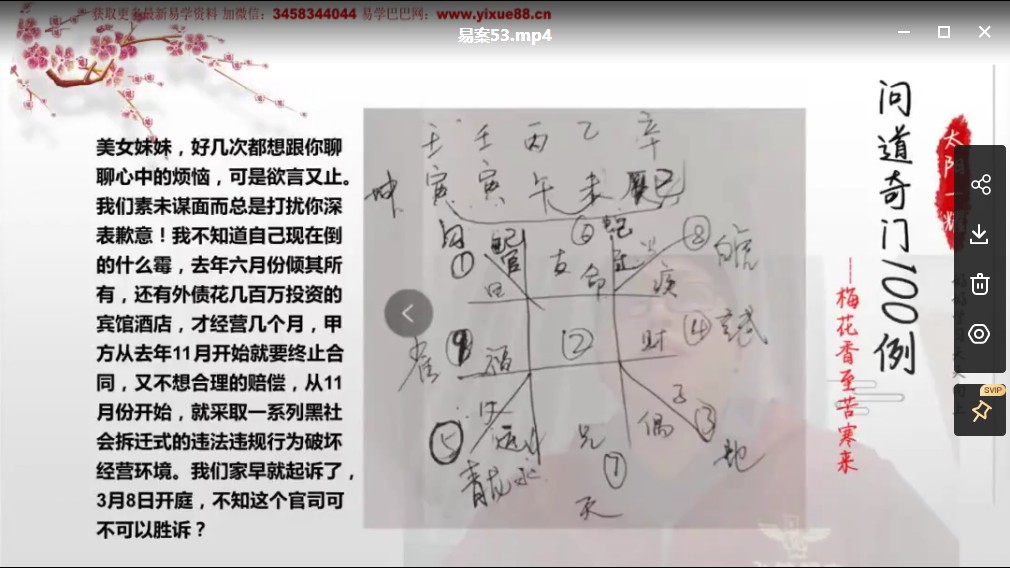 获取更多最新易学资料 加微信：3458344044 易学巴巴网：www.yixue88.cn
易案53.mp4
美女妹妹，好几次都想跟你聊
聊心中的烦恼，可是欲言又止。
我们素未谋面而总是打扰你深
表歉意！我不知道自己现在倒
的什么霉，去年六月份倾其所
有，还有外债花几百万投资的
宾馆酒店，才经营几个月，甲
方从去年11月开始就要终止合
同，又不想合理的赔偿，从11
月份开始，就采取一系列黑社
会拆迁式的违法违规行为破坏
经营环境。我们家早就起诉了，
3月8日开庭，不知这个官司可
不可以胜诉？
壬 壬 丙 乙 辛
坤 寅 寅 午 未 巳
① 官 ⑥ ⑧ 白虎
田 支 命 疾
雀 福 ② 财 ④ 玄武
⑤ 兄 偶 子 ③ 地
青龙 ⑦
天
问道奇门100例
太阳一
——梅花香至苦寒来
SVIP